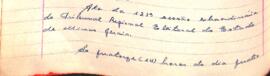 Ata da 121ª sessão extraordinária
do Tribunal Regional Eleitoral do Estado
de Minas Gerais.
Às quatorze (14) horas do dia quatro